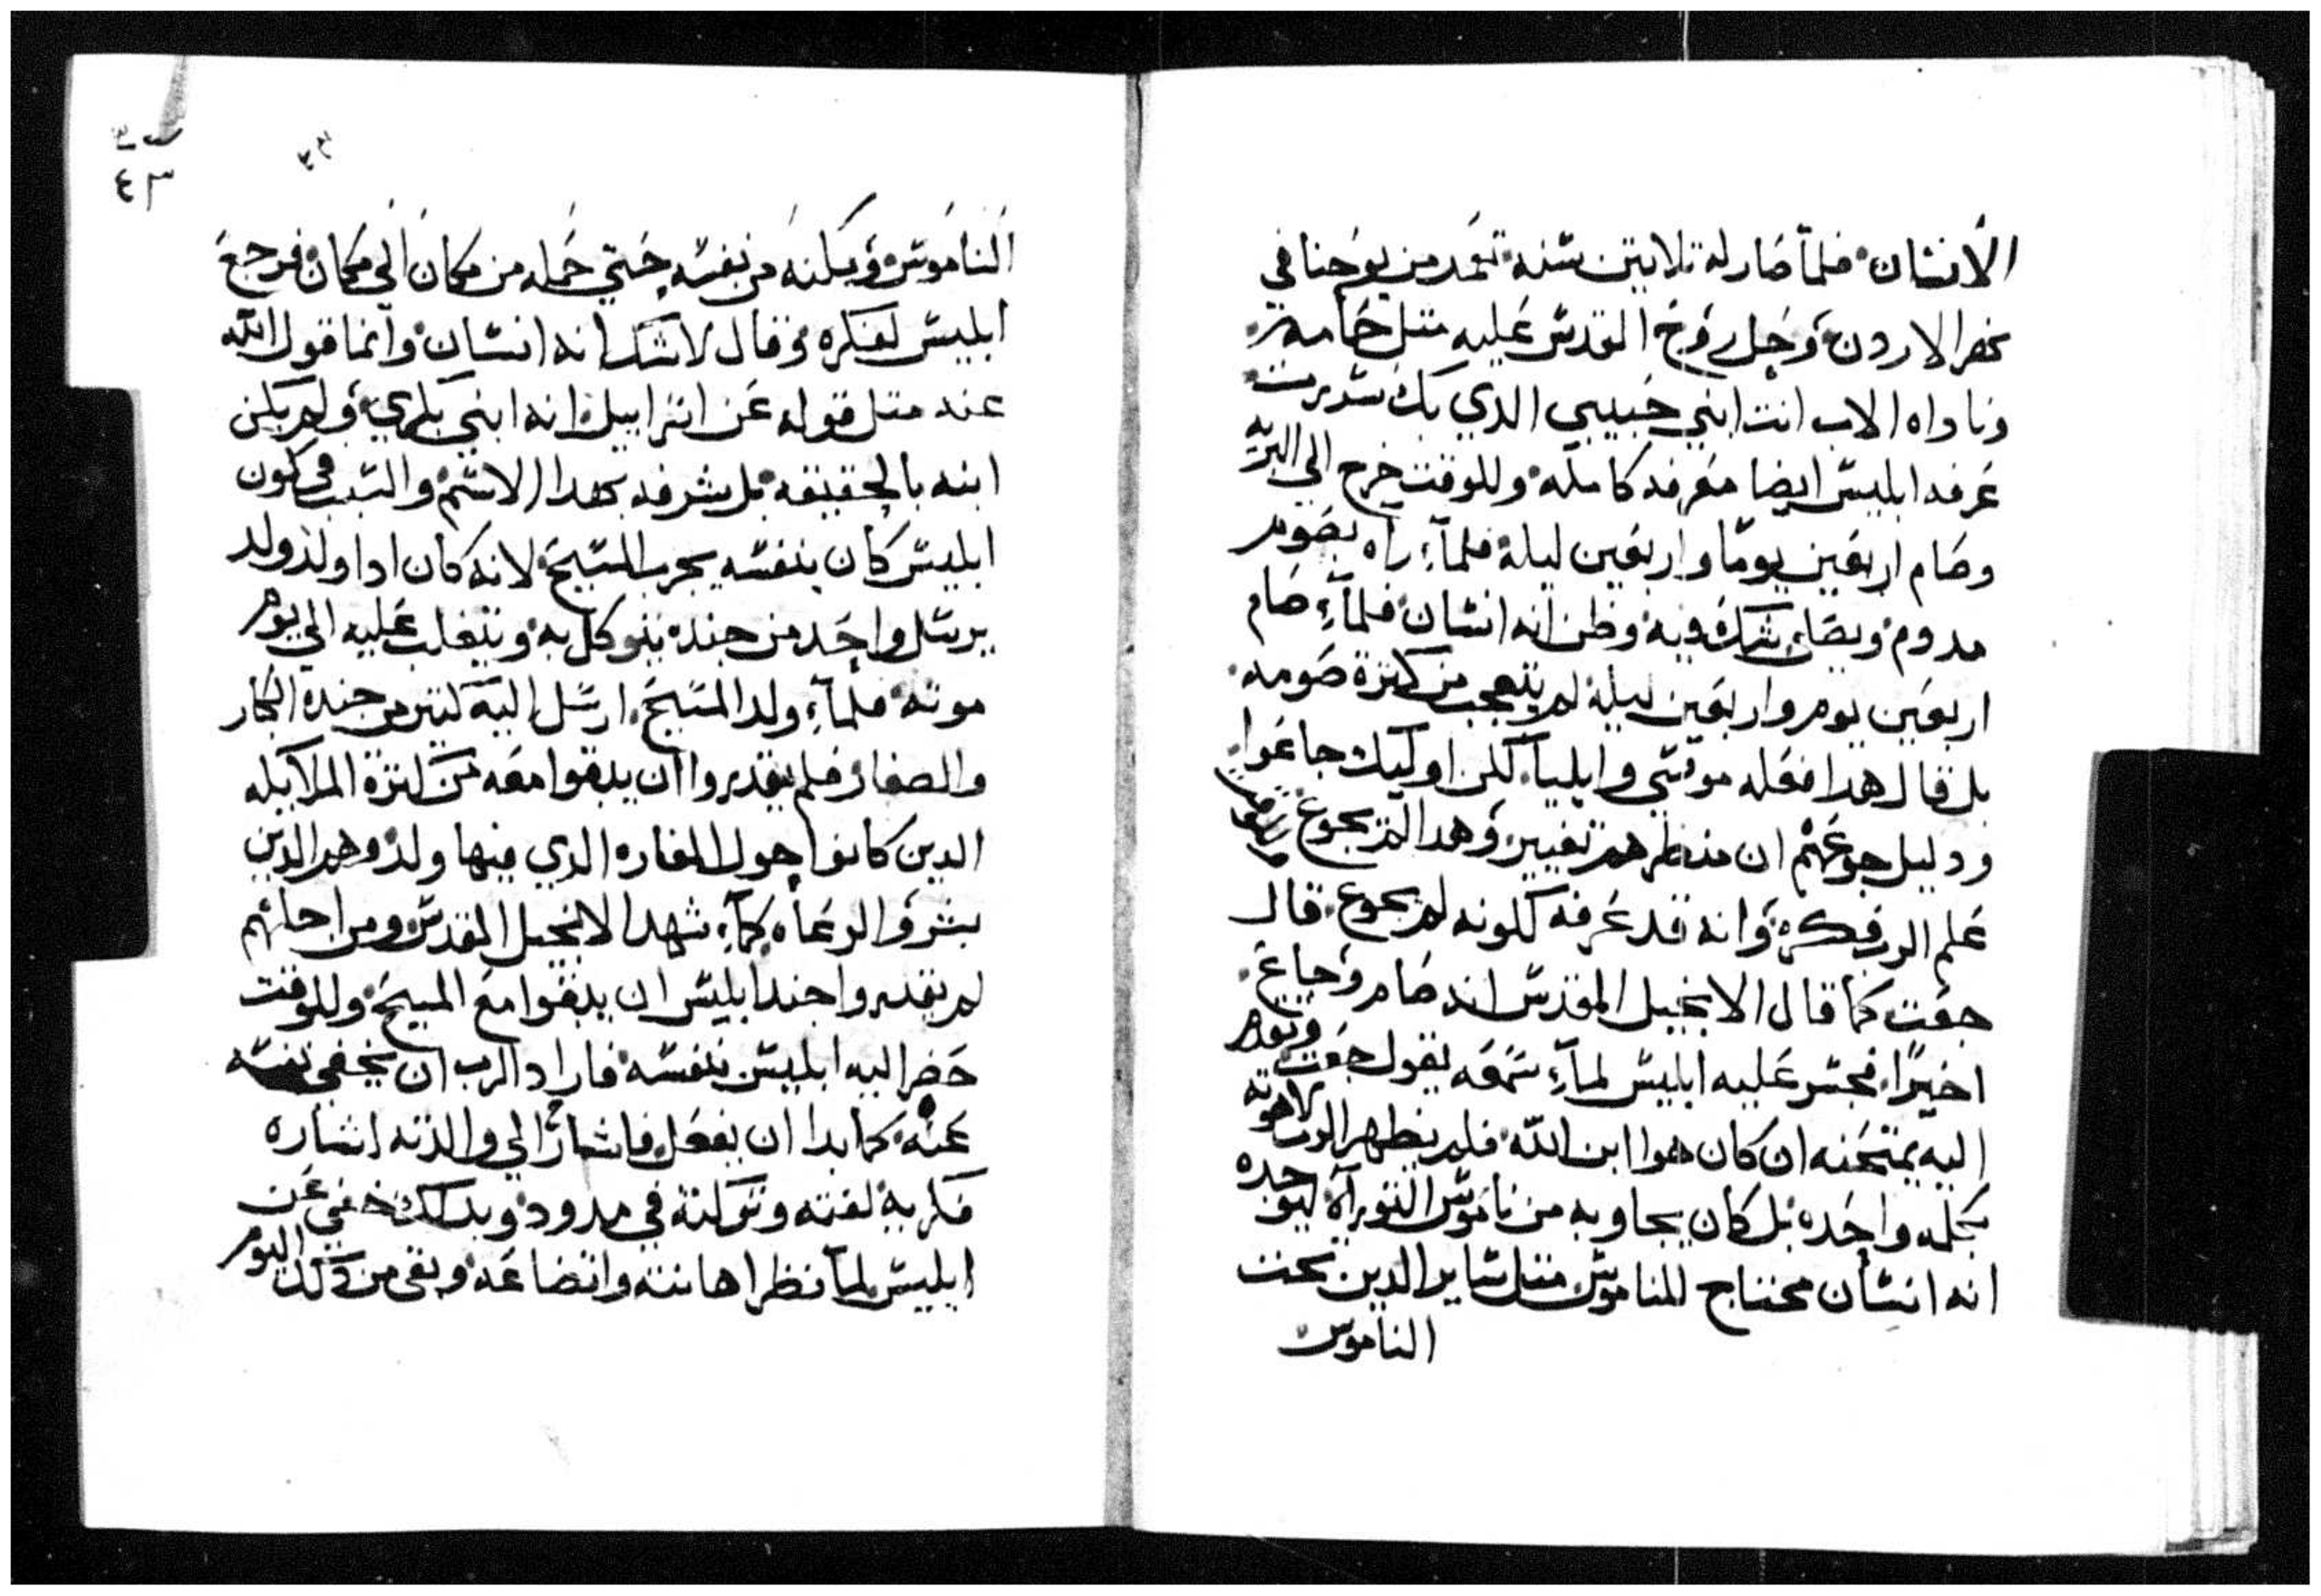 الانسان فلما صار له تلاتين سنه تعمد من يوحنا في
نهر الاردن وحل روح القدس عليه متل حمامه
وناداه الاب انت ابني حبيبي الدي بك سررت
عرفه ابليس ايضا معرفه كامله وللوقت خرج الي البريه
وصام اربعين يوما واربعين ليلة فلما راه يصوم
مدوم ويصلي شك فيه وظن انه انسان فلما صام
اربعين يوم واربعين ليلة لم يتعجب من كترة صومه
بل قال هدا فعله موسي وايليا لكن اوليك جاعوا
ودليل جوعهم ان منظرهم تغيير وهدا لم يجوع
علم الرب فكره وانه قد عرفه لكونه لم يجوع قال
جعت كما قال الانجيل المقدس انه صام وجاع
اخيرا فجسر عليه ابليس لما سمعه يقول جعت وتقدم
اليه يمتحنه ان كان هوا ابن الله فلم يظهر الرب لاهوته
بكلمه واحده بل كان يجاوبه من ناموس التوراة ليوجده
انه انسان محتاج للناموس متل ساير الدين تحت
الناموس
٤٣
الناموس ويمكنه من نفسه حتي حمله من مكان الي مكان فرجع
ابليس لفكره وقال لا شك انه انسان وانما قول الله
عنه متل قوله عن اسراييل انه ابني بكري ولم يكن
ابنه بالحقيقه بل شرفه بهدا الاسم والسبب في كون
ابليس كان بنفسه يجرب المسيح لانه كان ادا ولد ولد
يرسل واحد من جنده يتوكل به ويتغلب عليه الي يوم
موته فلما ولد المسيح ارسل اليه كتير من جنده الكبار
والصغار فلم يقدروا ان يدنوا معه من كترة الملايكه
الدين كانوا حول المغاره الدي فيها ولد وهم الدين
بشروا الرعاه كما شهد الانجيل المقدس ومن اجلهم
لم يقدروا جند ابليس ان يدنوا مع المسيح وللوقت
حضر اليه ابليس بنفسه فاراد الرب ان يخفي نفسه
عنه كما بدا ان يفعل فاشار الي والدته اشاره
فكريه لفته وتركته في مدود وبدلك خفي عن
ابليس لما نظر اهانته واتضاعه وبقي من دلك اليوم